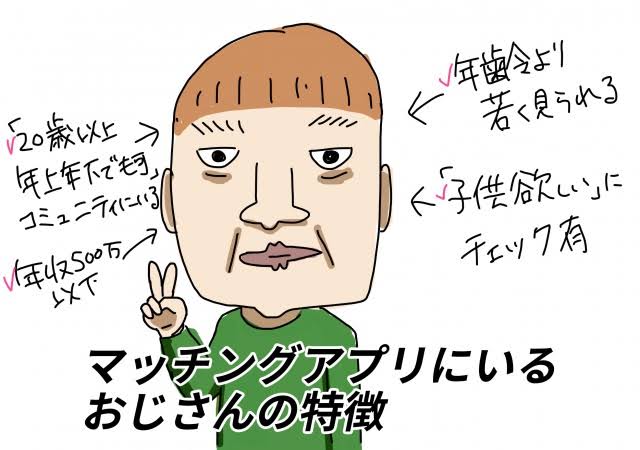 「20歳以上
年上年下でも可」
コミュニティにいる
年収500万
以下
年齢より
若く見られる
「子供欲しい」に
チェック有
マッチングアプリにいる
おじさんの特徴